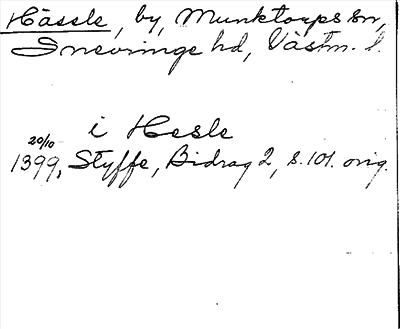 Hässle, by, Munktorps sn,
Snevringe hd, Västm. l.
i Hesle
20/10
1399, Styffe, Bidrag 2, s. 101. orig.